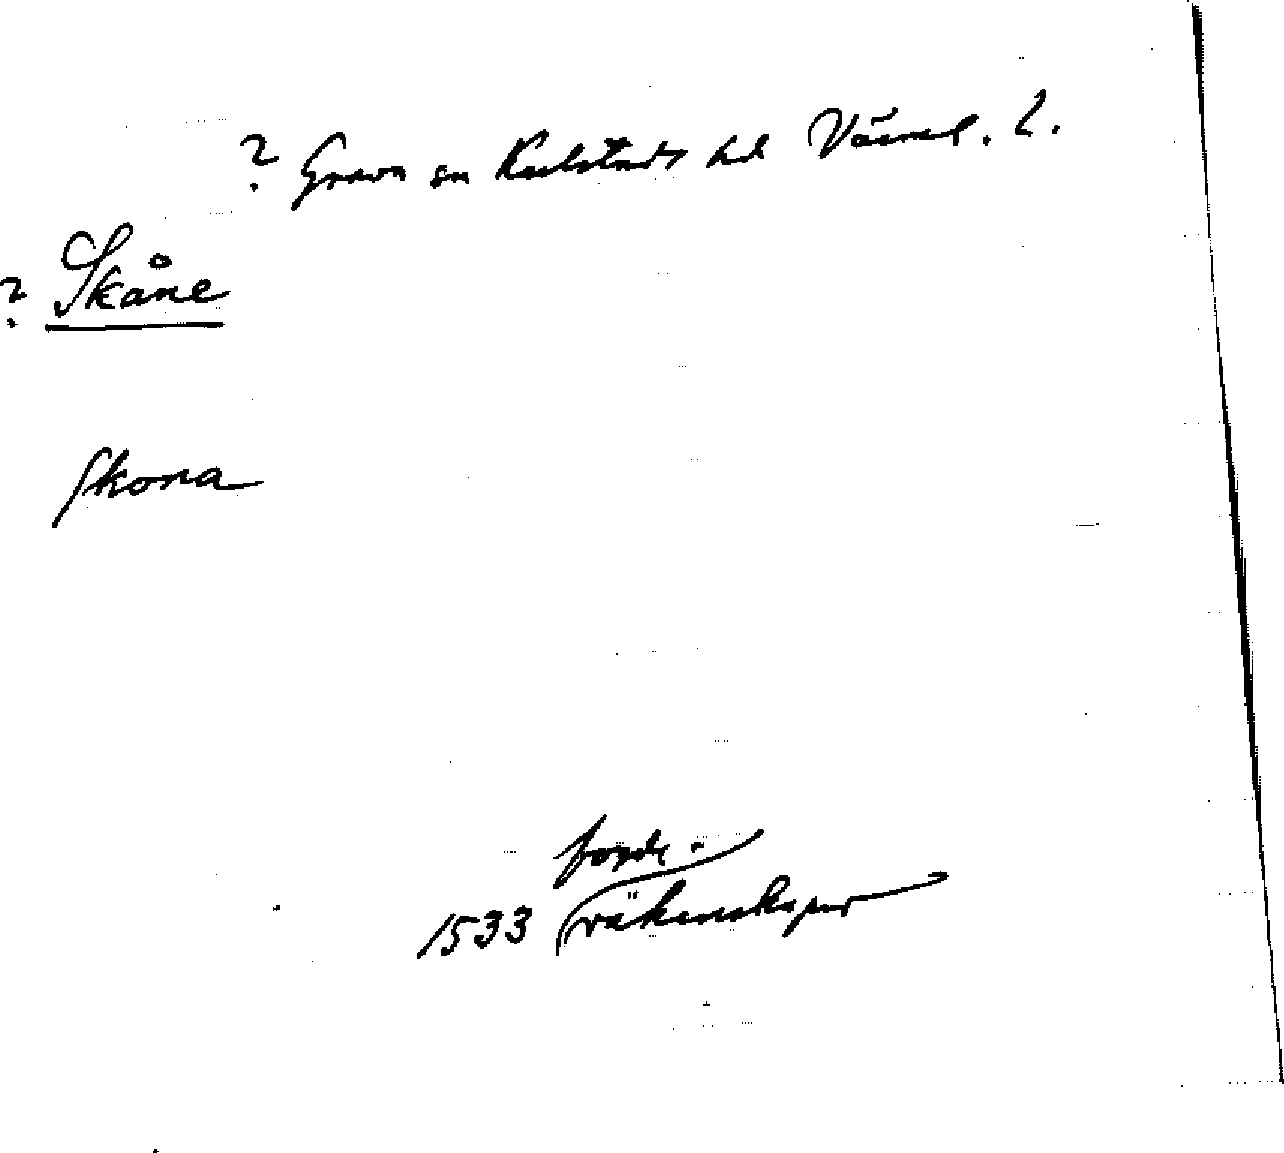 ? Grava sn Karlstads hd Värml. l.
? Skåne
Skona
jorde-
1533 räkenskaper